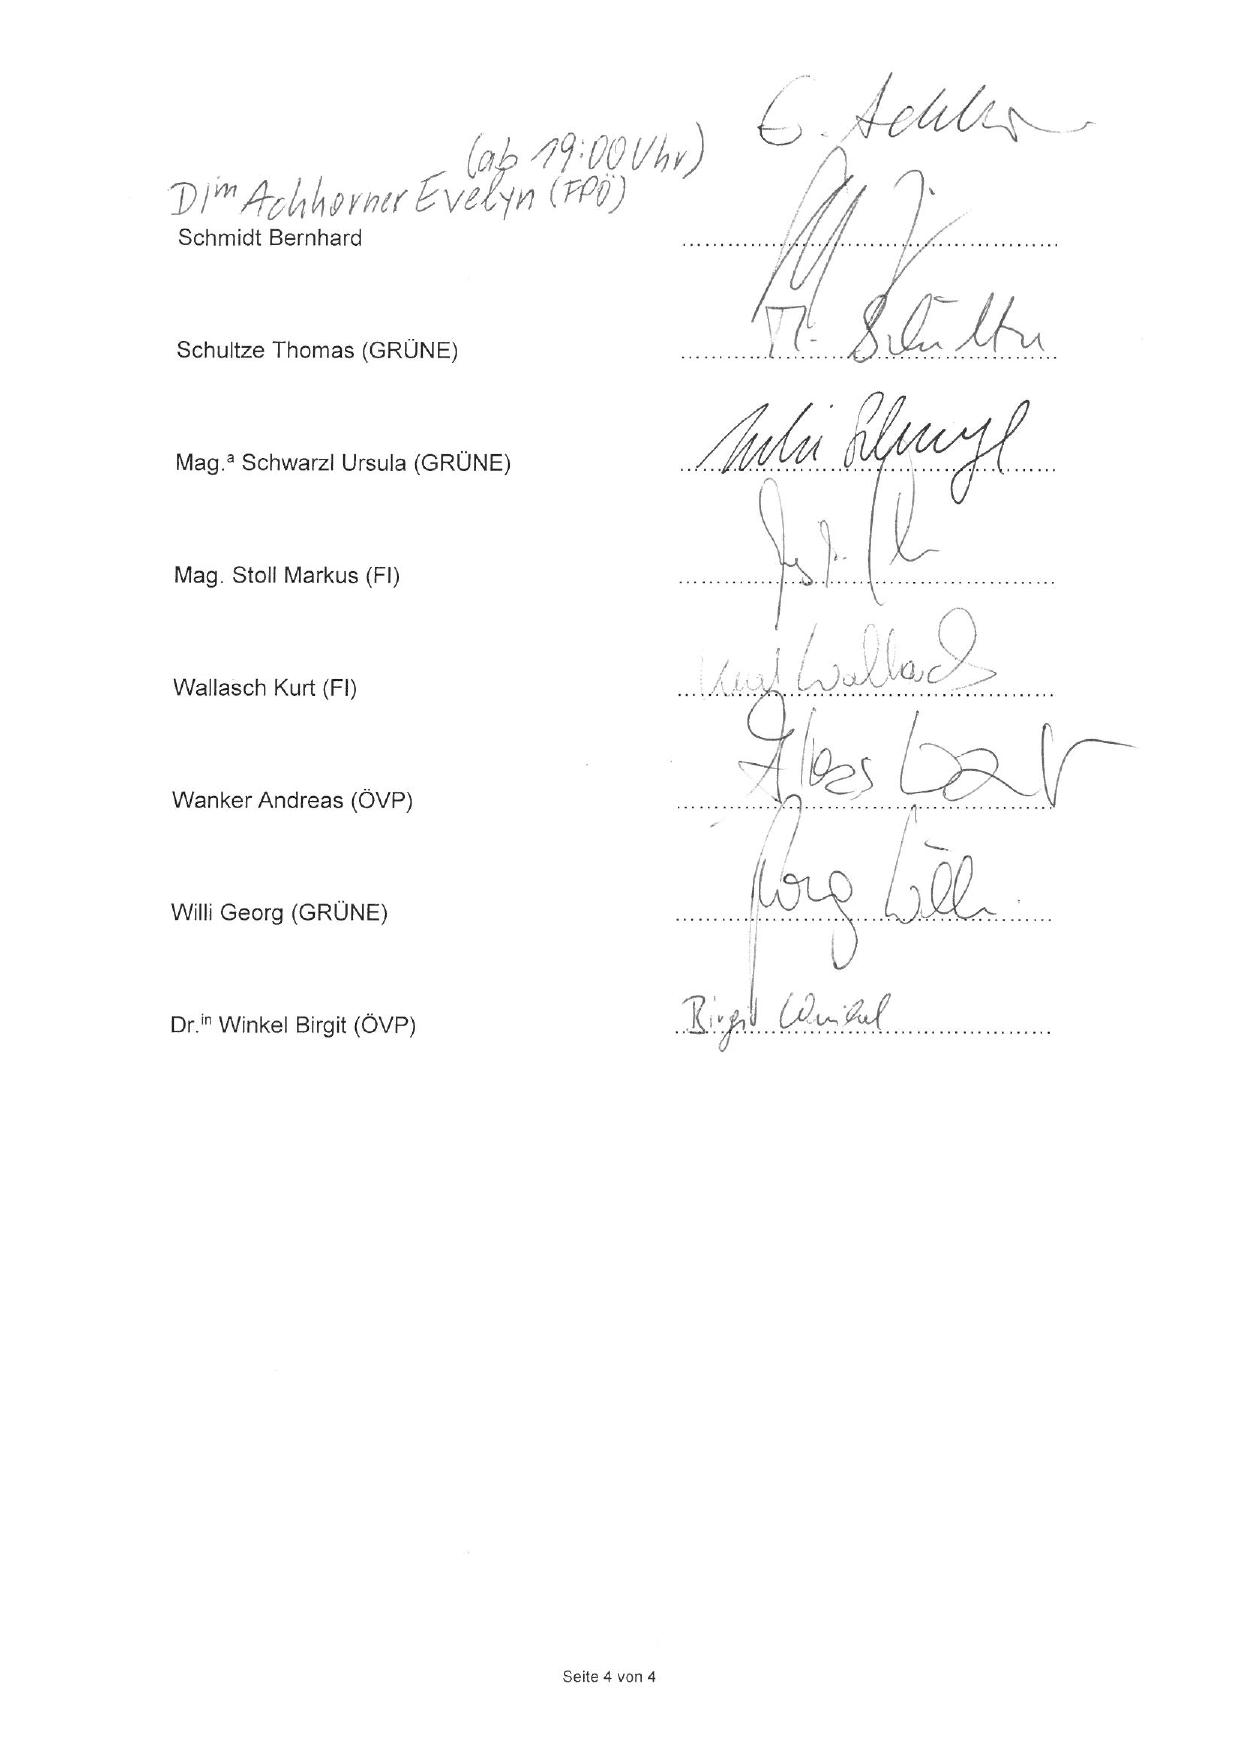 E. Achho
(ab 19:00 Uhr)
DIin Achhorner Evelyn (FPÖ)
Schmidt Bernhard
Schultze Thomas (GRÜNE)
Mag.ª Schwarzl Ursula (GRÜNE)
Mag. Stoll Markus (FI)
Wallasch Kurt (FI) Kurt Wallasch
Wanker Andreas (ÖVP)
Willi Georg (GRÜNE) Georg Willi
Dr.in Winkel Birgit (ÖVP) Birgit Winkel
Seite 4 von 4